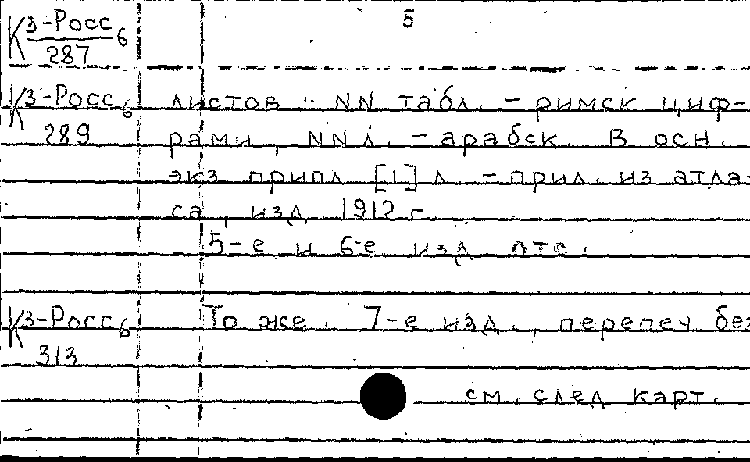 5
К 3-Росс 6
287
К 3-Росс 6
289
листов: NN табл. - римск. циф-
рами, NN л. - арабск. В осн.
экз. припл. [1] л. - прил. из атла-
са, изд. 1912 г.
5-е и 6-е изд. отс.
К 3-Росс 6
313
То же. 7-е изд., перепеч. без
см. след. карт.